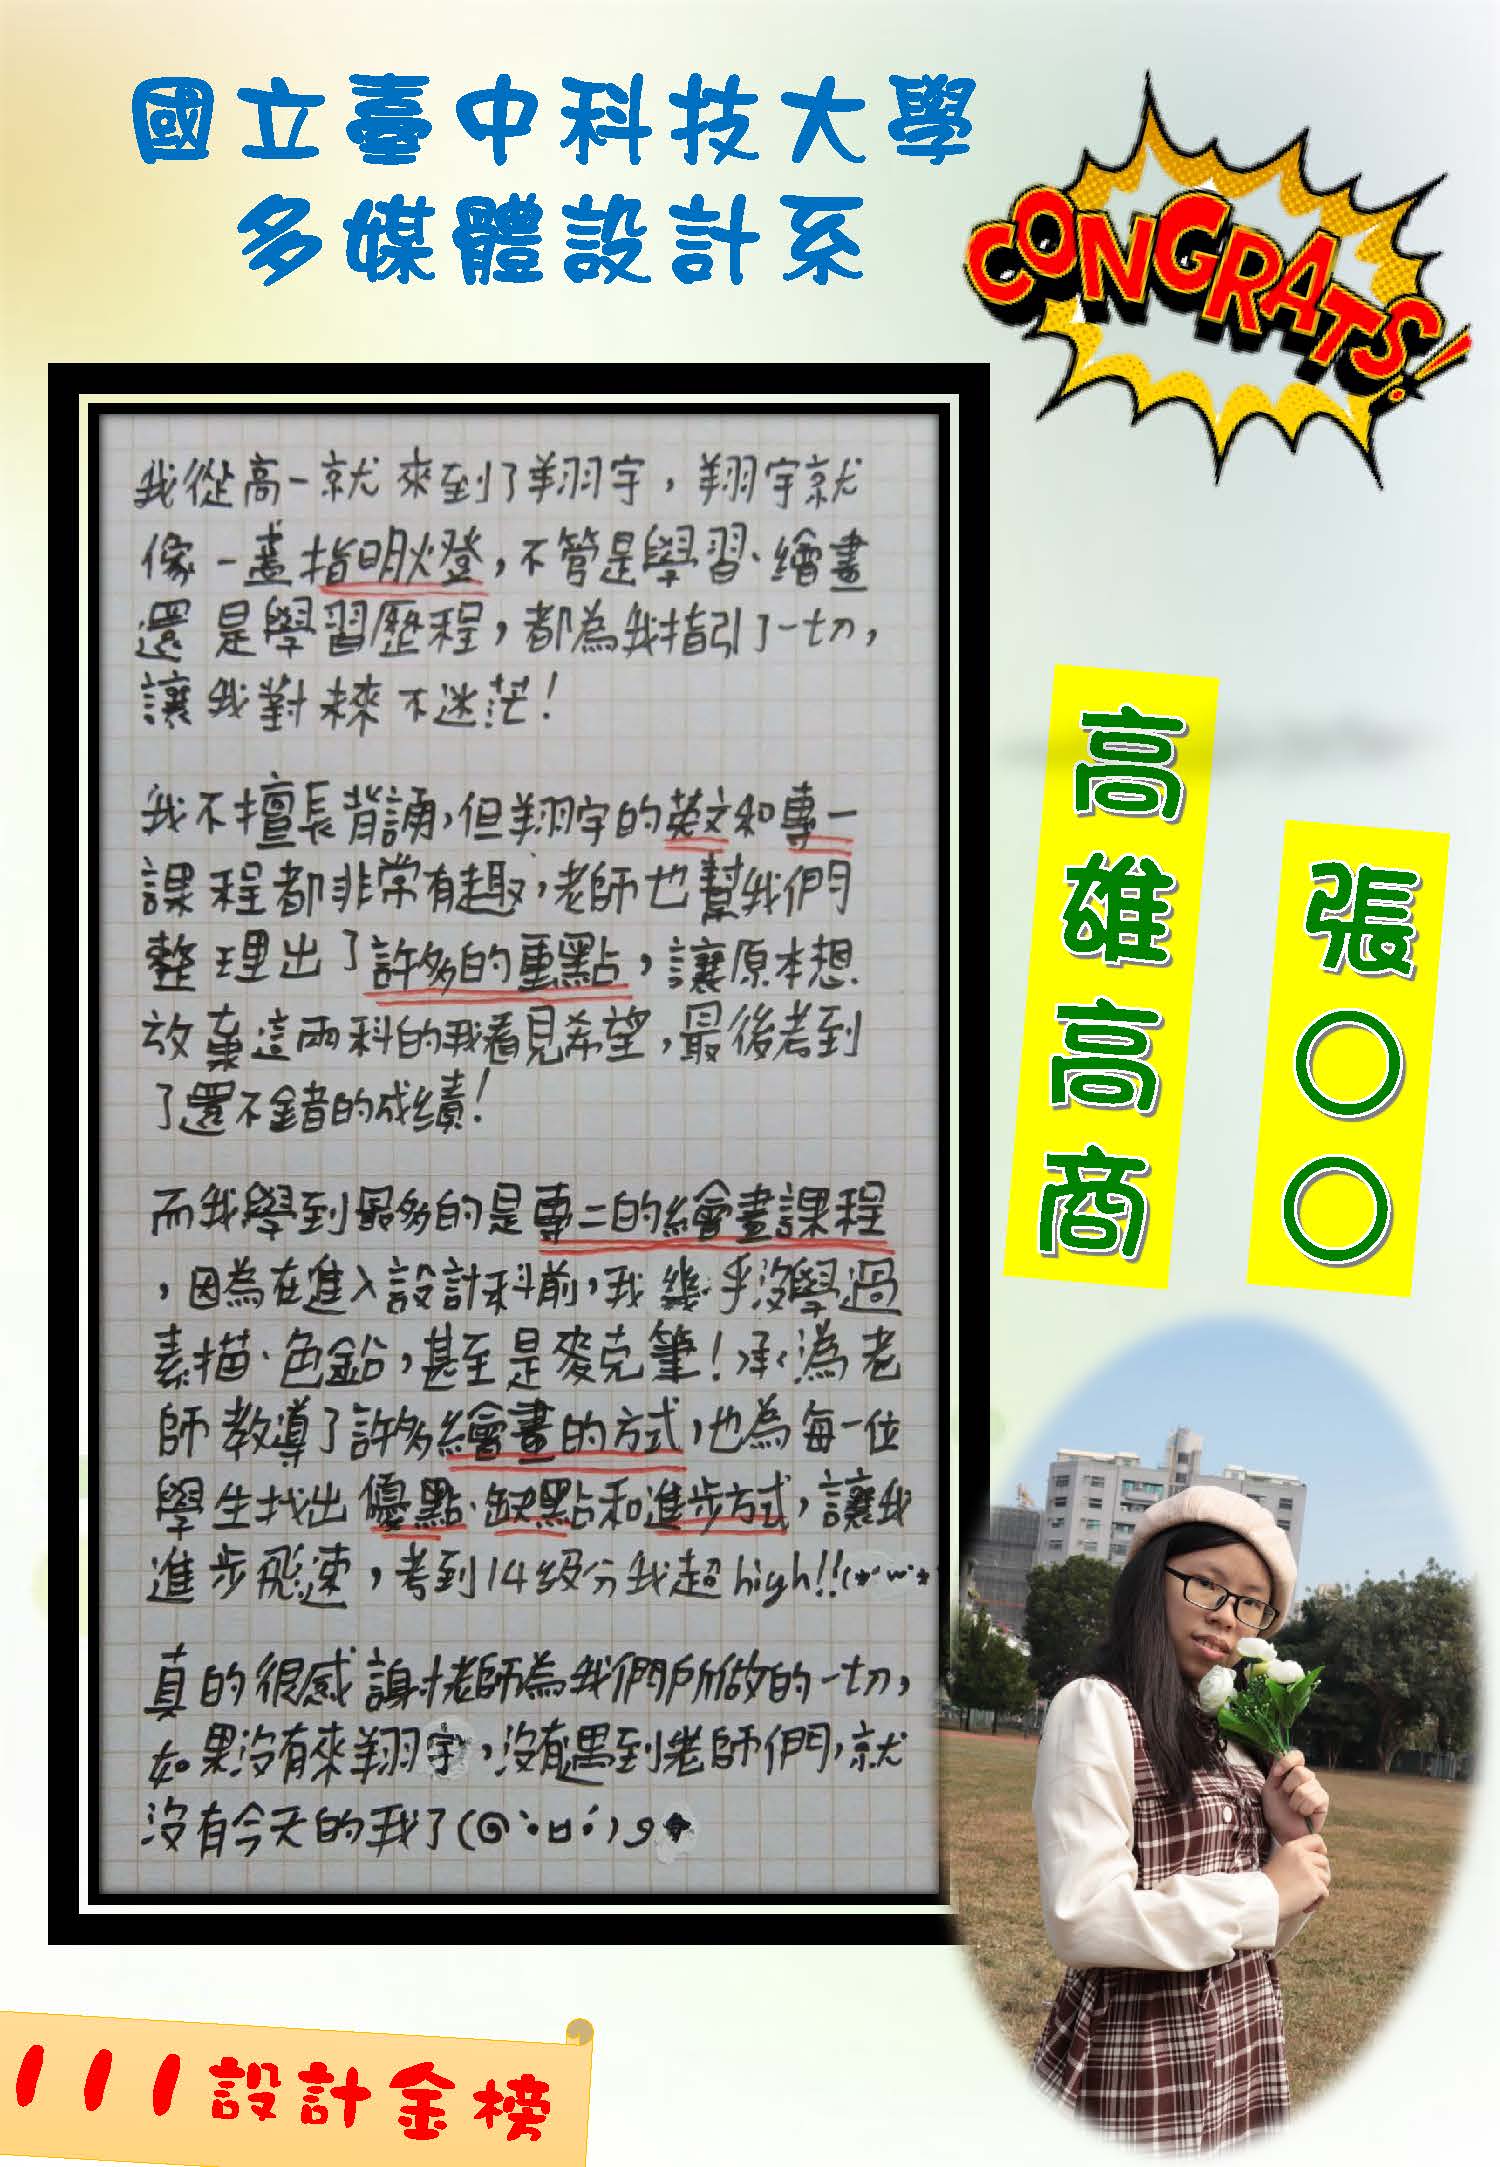 國立臺中科技大學
多媒體設計系
CONGRATS!
我從高一就來到了翔宇，翔宇就
像一盞指明燈，不管是學習、繪畫
還是學習歷程，都為我指引了一切，
讓我對未來不迷茫！
我不擅長背誦，但翔宇的英文和專一
課程都非常有趣，老師也幫我們
整理出了許多的重點，讓原本想
放棄這兩科的我看見希望，最後考到
了還不錯的成績！
而我學到最多的是專二的繪畫課程
，因為在進入設計科前，我幾乎沒學過
素描、色鉛，甚至是麥克筆！承溈老
師教導了許多繪畫的方式，也為每一位
學生找出優點、缺點和進步方式，讓我
進步飛速，考到14級分我超high!!(*'w'*
真的很感謝老師為我們所做的一切，
如果沒有來翔宇，沒有遇到老師們，就
沒有今天的我了(๑•̀ㅂ•́)و✧
高雄高商
張〇〇
111設計金榜